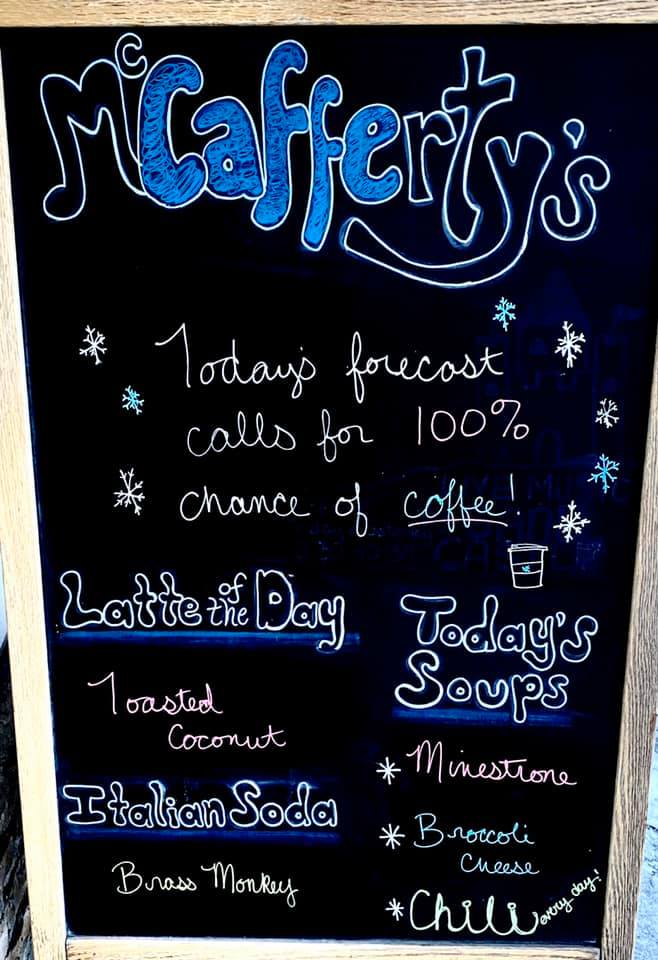 McCafferty's
Today's forecast
calls for 100%
chance of coffee!
Latte of the Day
Toasted
Coconut
Italian Soda
Brass Monkey
Today's
Soups
* Minestrone
* Broccoli
Cheese
* Chili every day!